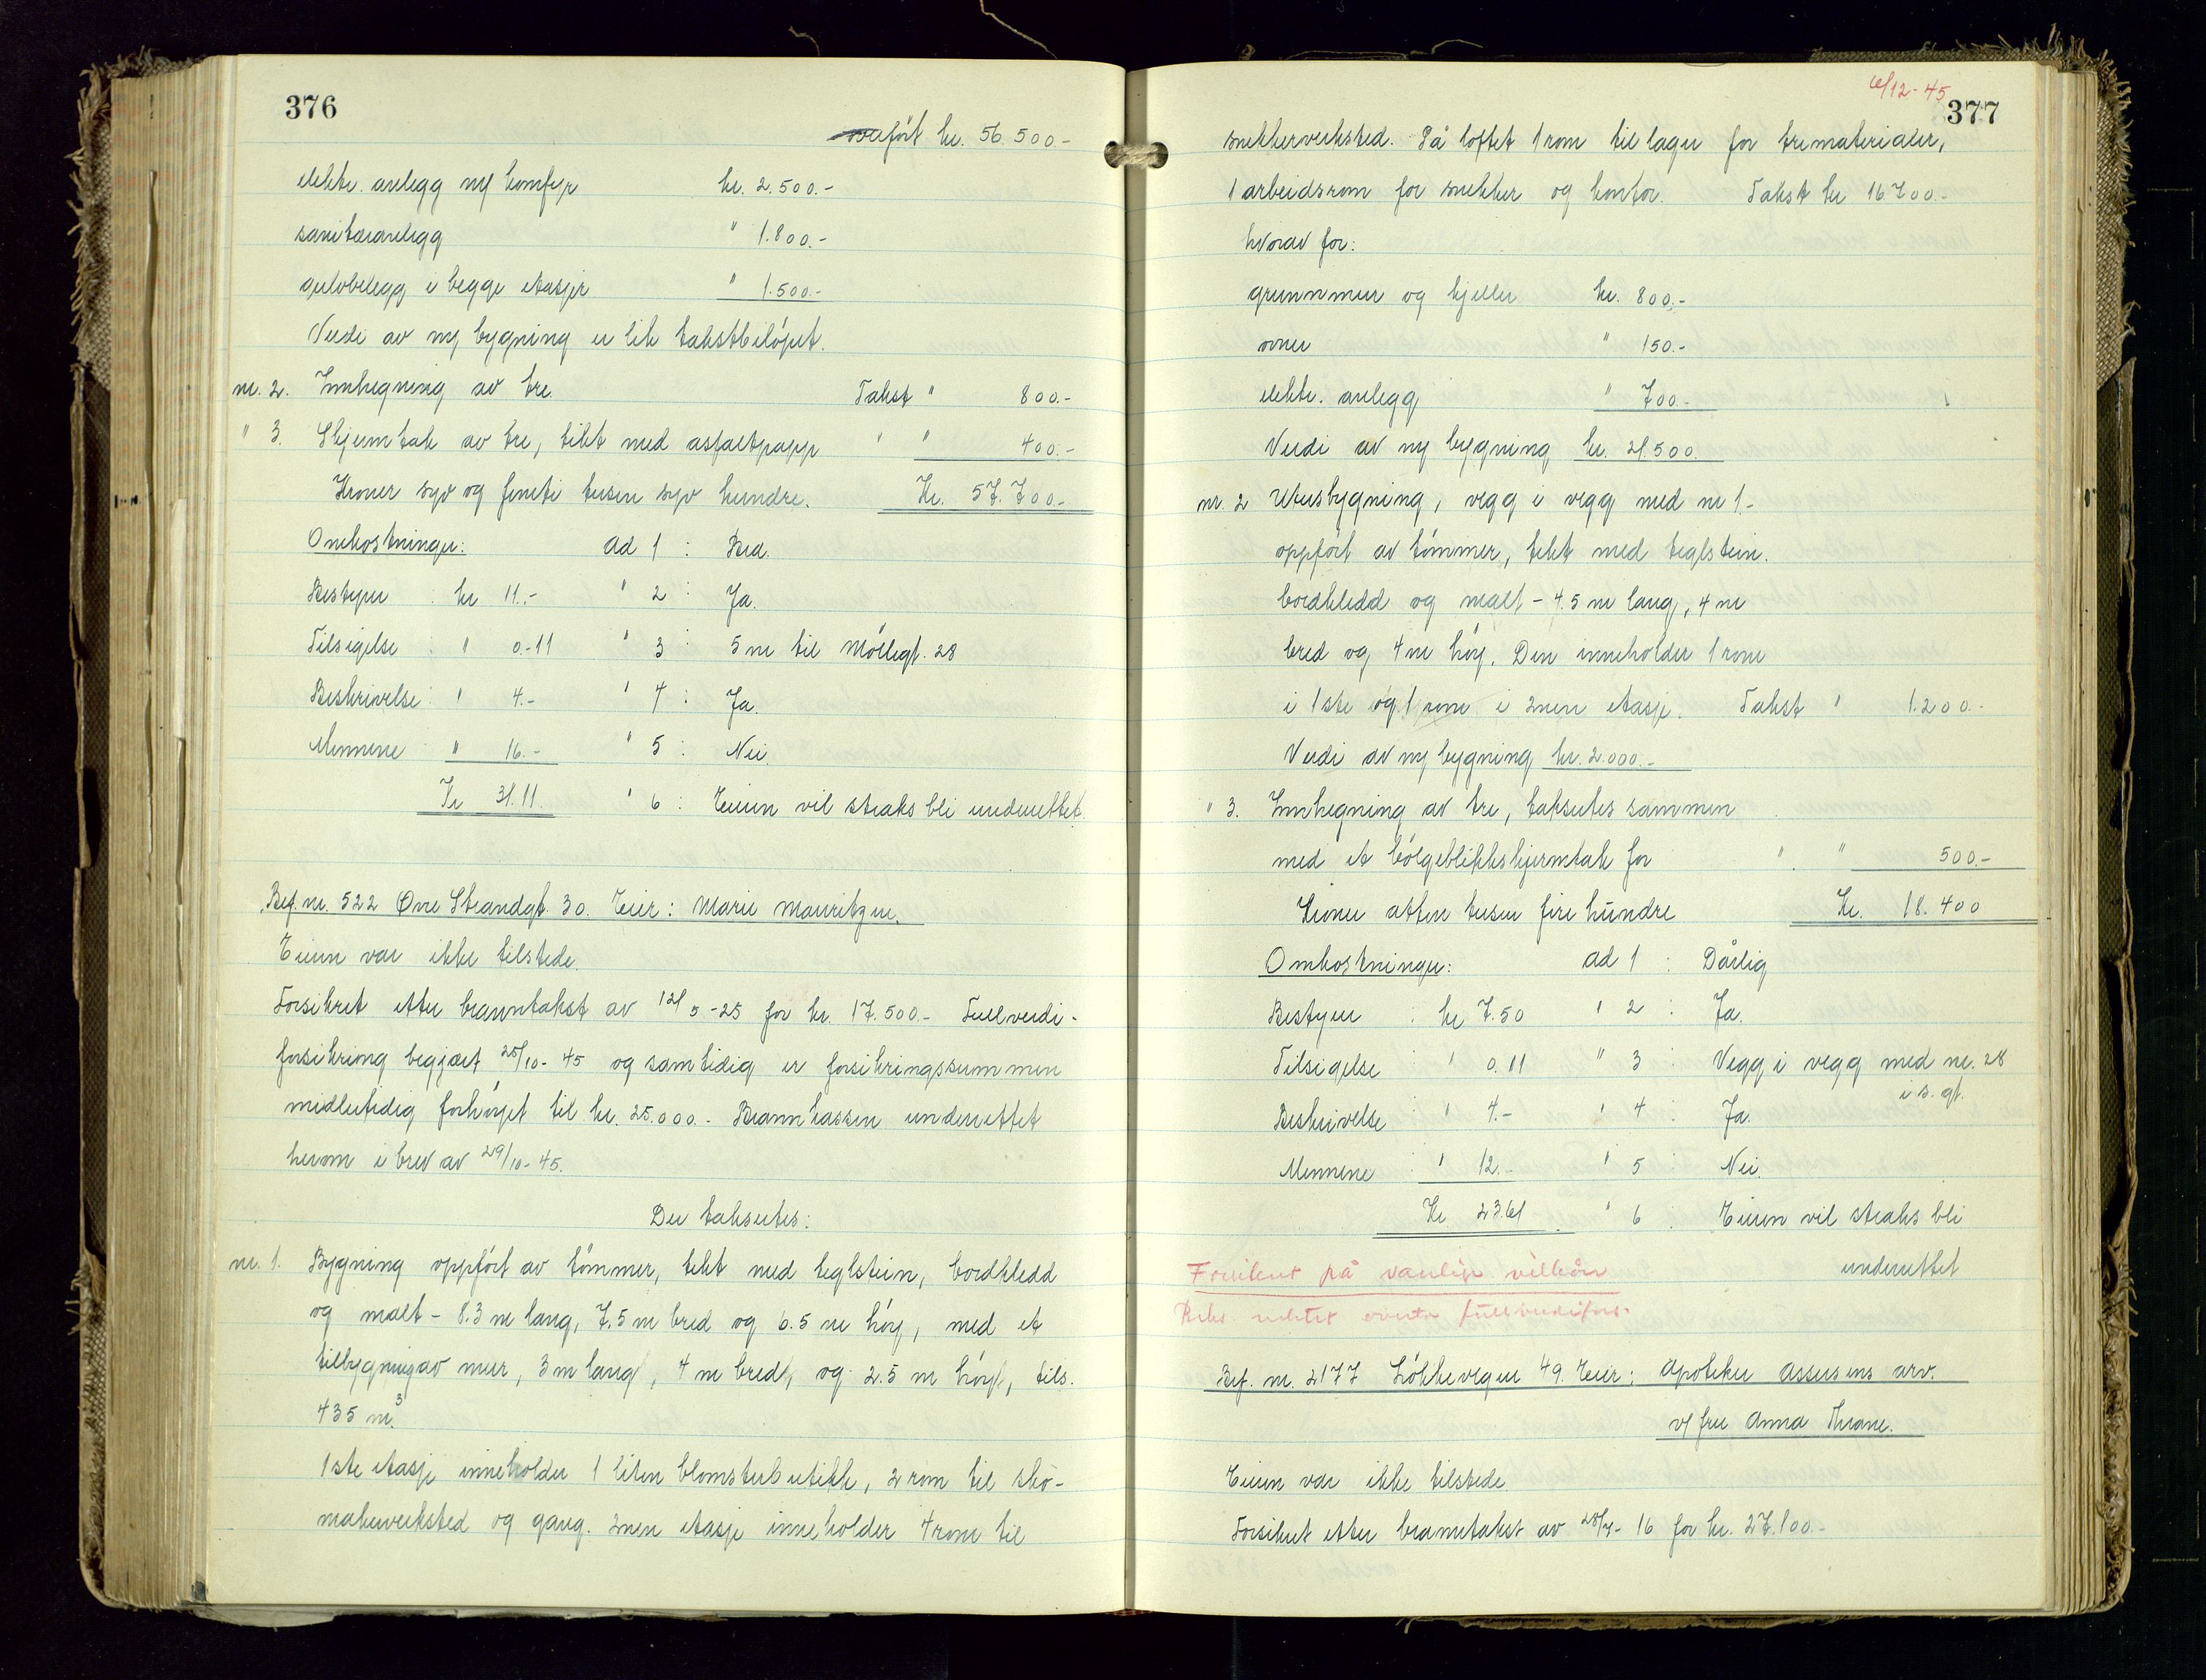 376
overfört kr. 56.500.-
elektr. anlegg m/ komfyr kr. 2.500.-
sanitæranlegg " 1.800.-
gulvbelegg i begge etasjer " 1.500.-
Verdi av ny bygning er lik takstbelöpet.
nr. 2. Innhegning av tre. Takst " 800.-
" 3. Skjermtak av tre, tekt med asfaltpapp " " 400.-
Kroner syv og femti tusen syv hundre. Kr. 57.700.-
Omkostninger: ad 1 : Bra.
Bestyrer : kr 11.- " 2 : Ja.
Tilsigelse : " 0.-11 " 3 : 5 m til Möllegt. 28
Beskrivelse : " 4.- " 4 : Ja.
Mennene " 16.- " 5 : Nei.
Kr 31.11. " 6 : Eieren vil straks bli underrettet.
Bef. nr. 522 Övre Strandgt. 30. Eier: Marie Mauritzen.
Eieren var ikke tilstede.
Forsikret etter branntakst av 12/5-25 for kr. 17.500.- Fullverdi-
forsikring begjært 25/10-45 og samtidig er forsikringssummen
midlertidig forhöyet til kr. 25.000.- Brannkassen underrettet
herom i brev av 29/10-45.
Der takseres:
nr. 1. Bygning oppfört av tömmer, tekt med teglstein, bordkledd
og malt - 8.3 m lang, 7.5 m bred og 6.5 m höy, med et
tilbygning av mur, 3 m lang, 4 m bred, og 2.5 m höy, tils.
435 m³.
1ste etasje inneholder 1 liten blomsterbutikk, 2 rom til sko-
makerverksted og gang. 2nen etasje inneholder 4 rom til
6/12-45
377
snekkerverksted. På loftet 1 rom til lager for trematerialer,
1 arbeidsrom for snekker og kontor. Takst kr 16.700.-
hvorav for:
grunnmur og kjeller kr. 800.-
ovner " 150.-
elektr. anlegg " 700.-
Verdi av ny bygning kr. 21.500.
nr. 2 Uthusbygning, vegg i vegg med nr 1.-
oppfört av tömmer, tekt med teglstein.
bordkledd og malt - 4.5 m lang, 4 m
bred og 4 m höy. Den inneholder 1 rom
i 1ste og 1 rom i 2nen etasje. Takst " 1.200.-
Verdi av ny bygning kr. 2.000.-
" 3. Innhegning av tre, takseres sammen
med et bölgeblikkskjermtak for " " 500.-
Kroner atten tusen fire hundre Kr. 18.400
Omkostninger: ad 1 : Dårlig
Bestyrer : kr 7.50 " 2 : Ja.
Tilsigelse " 0.11 " 3 : Vegg i vegg med nr. 28
i s. gt.
Beskrivelse : " 4.- " 4 : Ja.
Mennene : " 12.- " 5 : Nei.
Kr 23.61 " 6 : Eieren vil straks bli
underrettet
Forsikret på vanlige vilkår
fullverdifors.
Bef. nr. 2177 Lökkevegen 49. Eier: Apoteker Assersens arv.
v/ fru Anna Thrane.
Eieren var ikke tilstede.
Forsikret etter branntakst av 28/7-16 for kr. 27.100.-